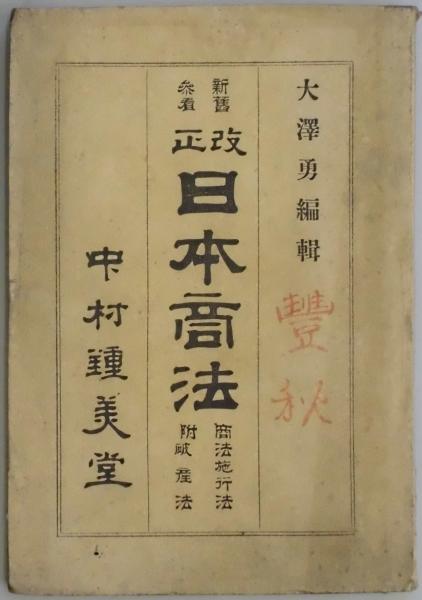 大澤勇編輯
豐秋
新舊
參看
改正
日本商法
商法施行法
附破產法
中村鍾美堂